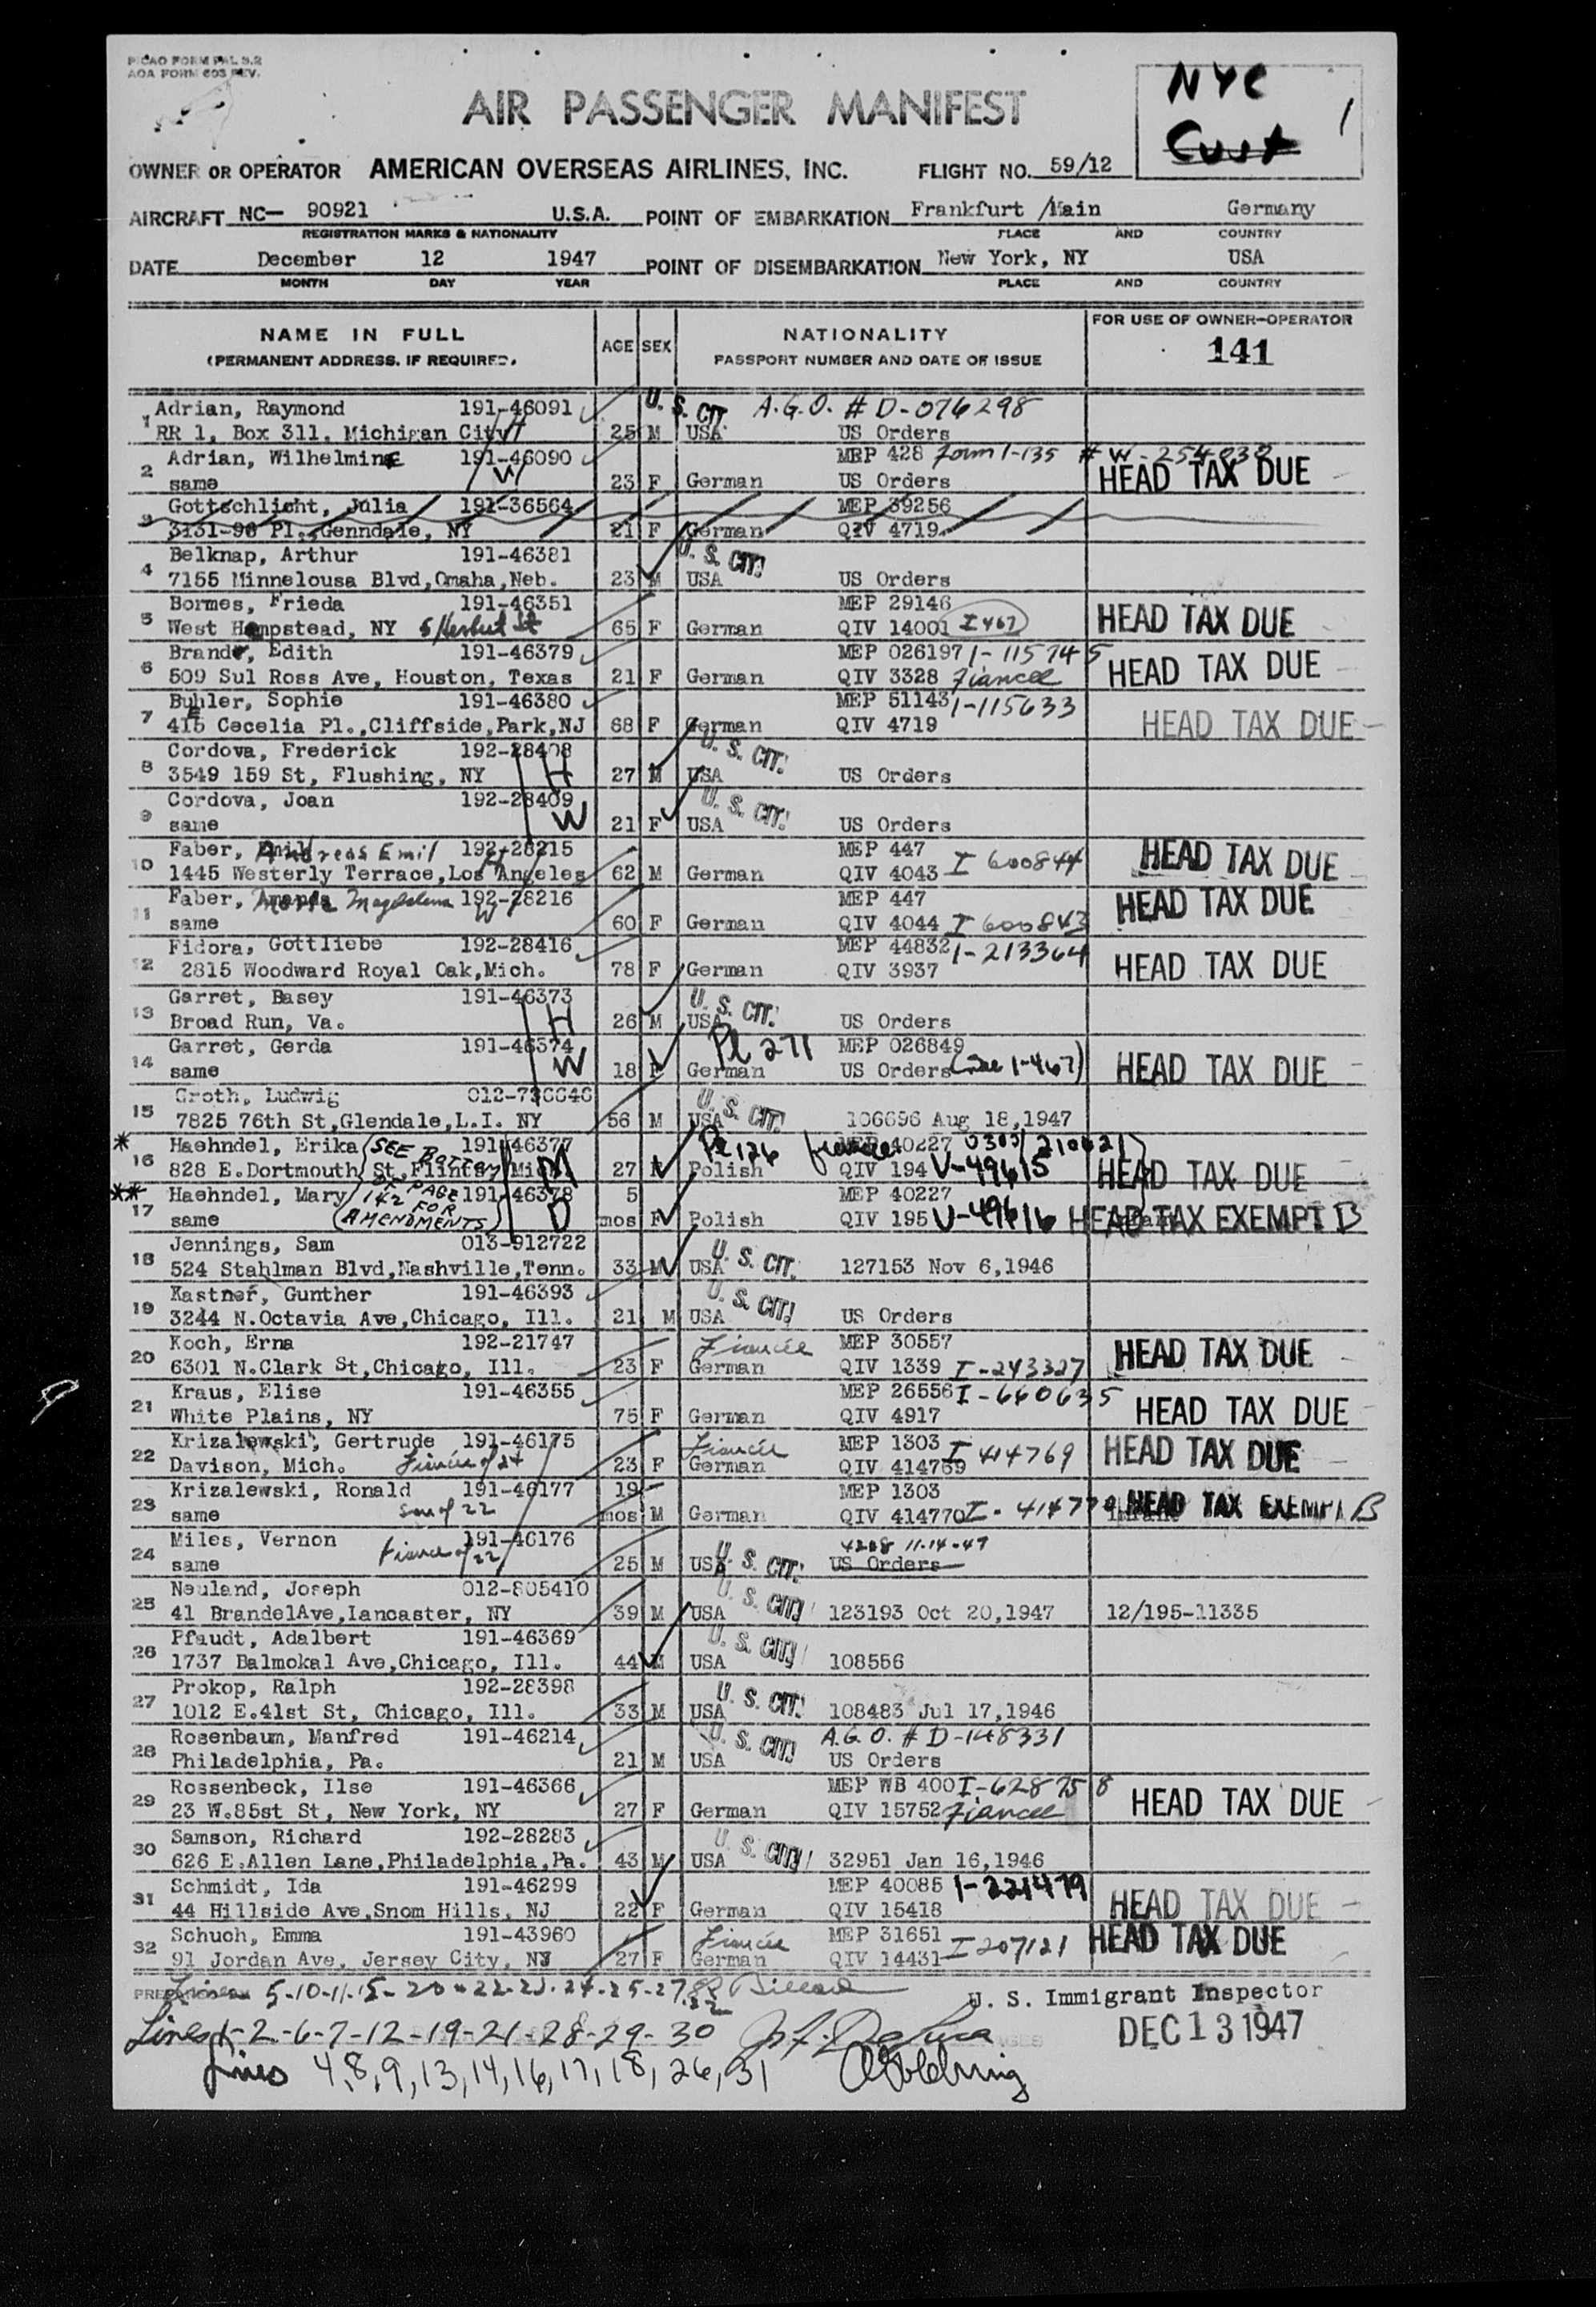 PICAO FORM PAL S.2
AOA FORM 603 REV.
NYC
Cust
1
AIR PASSENGER MANIFEST
OWNER OR OPERATOR AMERICAN OVERSEAS AIRLINES, INC. FLIGHT NO. 59/12
AIRCRAFT NC— 90921 U.S.A. POINT OF EMBARKATION Frankfurt /Main Germany
REGISTRATION MARKS & NATIONALITY PLACE AND COUNTRY
DATE December 12 1947 POINT OF DISEMBARKATION New York, NY USA
MONTH DAY YEAR PLACE AND COUNTRY
NAME IN FULL AGE SEX NATIONALITY FOR USE OF OWNER-OPERATOR
(PERMANENT ADDRESS, IF REQUIRED) PASSPORT NUMBER AND DATE OF ISSUE 141
1 Adrian, Raymond 191-46091 U. S. CIT A.G.O. # D-076298
RR 1, Box 311, Michigan City H 25 M USA US Orders
2 Adrian, Wilhelmine 191-46090 MEP 428 Form 1-135 # W-254030
same W 23 F German US Orders HEAD TAX DUE
3 Gottschlicht, Julia 191-36564 MEP 39256
3131-96 Pl., Genndale, NY 21 F German QIV 4719
4 Belknap, Arthur 191-46381 U. S. CIT!
7155 Minnelousa Blvd,Omaha,Neb. 23 M USA US Orders
5 Bormes, Frieda 191-46351 MEP 29146
West Hempstead, NY 5 Herbert St 65 F German QIV 14001 I 467 HEAD TAX DUE
6 Brandt, Edith 191-46379 MEP 026197 1-115745
509 Sul Ross Ave, Houston, Texas 21 F German QIV 3328 Fiancee HEAD TAX DUE
7 Buhler, Sophie 191-46380 MEP 51143 1-115633
415 Cecelia Pl.,Cliffside,Park,NJ 68 F German QIV 4719 HEAD TAX DUE
8 Cordova, Frederick 192-28408 U. S. CIT!
3549 159 St, Flushing, NY H 27 M USA US Orders
9 Cordova, Joan 192-28409 U. S. CIT!
same W 21 F USA US Orders
10 Faber, Emil Andreas Emil 192-28215 MEP 447 I 600844
1445 Westerly Terrace,Los Angeles 62 M German QIV 4043 HEAD TAX DUE
11 Faber, Maria Magdalena 192-28216 MEP 447
same W 60 F German QIV 4044 I 600843 HEAD TAX DUE
12 Fidora, Gottliebe 192-28416 MEP 44832 1-213364
2815 Woodward Royal Oak,Mich. 78 F German QIV 3937 HEAD TAX DUE
13 Garret, Basey 191-46373 U. S. CIT!
Broad Run, Va. H 26 M USA US Orders
14 Garret, Gerda 191-46374 PL 271 MEP 026849
same W 18 F German US Orders (See 1-467) HEAD TAX DUE
15 Groth, Ludwig 012-736640 U. S. CIT!
7825 76th St,Glendale,L.I. NY 56 M USA 106696 Aug 18,1947
* 16 Haehndel, Erika (SEE BOTTOM 191-46377 PL 126 MEP 40227 0303/210621
828 E.Dortmouth St,Flint, Mich M 27 F Polish QIV 194 V-49615 HEAD TAX DUE
** 17 Haehndel, Mary OF PAGE 142 FOR 191-46378 5 MEP 40227
same AMENDMENTS) D mos F Polish QIV 195 V-49616 HEAD TAX EXEMPT B
18 Jennings, Sam 013-912722 U. S. CIT.
524 Stahlman Blvd,Nashville,Tenn. 33 M USA 127153 Nov 6,1946
19 Kastner, Gunther 191-46393 U. S. CIT!
3244 N.Octavia Ave,Chicago, Ill. 21 M USA US Orders
20 Koch, Erna 192-21747 Fiancée MEP 30557
6301 N.Clark St,Chicago, Ill. 23 F German QIV 1339 I-243327 HEAD TAX DUE
21 Kraus, Elise 191-46355 MEP 26556 I-660635
White Plains, NY 75 F German QIV 4917 HEAD TAX DUE
22 Krizalewski, Gertrude 191-46175 Fiancée MEP 1303 I 414769
Davison, Mich. Fiancée of 24 23 F German QIV 414769 HEAD TAX DUE
23 Krizalewski, Ronald 191-46177 19 MEP 1303
same Son of 22 mos M German QIV 414770 I-414770 HEAD TAX EXEMPT B
24 Miles, Vernon 191-46176 4208 11-14-47
same Fiance of 22 25 M USA U. S. CIT! US Orders
25 Neuland, Joseph 012-805410 U. S. CIT!
41 BrandelAve,Lancaster, NY 39 M USA 123193 Oct 20,1947 12/195-11335
26 Pfaudt, Adalbert 191-46369 U. S. CIT!
1737 Balmokal Ave,Chicago, Ill. 44 M USA 108556
27 Prokop, Ralph 192-28398 U. S. CIT!
1012 E.41st St, Chicago, Ill. 33 M USA 108483 Jul 17,1946
28 Rosenbaum, Manfred 191-46214 U. S. CIT! A.G.O. # D-148331
Philadelphia, Pa. 21 M USA US Orders
29 Rossenbeck, Ilse 191-46366 MEP WB 400 I-628758
23 W.85st St, New York, NY 27 F German QIV 15752 Fiancee HEAD TAX DUE
30 Samson, Richard 192-28283 U. S. CIT!
626 E.Allen Lane,Philadelphia,Pa. 43 M USA 32951 Jan 16,1946
31 Schmidt, Ida 191-46299 MEP 40085 1-221479
44 Hillside Ave,Snom Hills, NJ 22 F German QIV 15418 HEAD TAX DUE
32 Schuch, Emma 191-43960 Fiancée MEP 31651
91 Jordan Ave, Jersey City, NJ 27 F German QIV 14431 I 207121 HEAD TAX DUE
Lines 5-10-11-15-20-22-23-24-25-27-32
U. S. Immigrant Inspector
Lines 1-2-6-7-12-19-21-28-29-30
DEC 13 1947
Lines 4,8,9,13,14,16,17,18,26,31